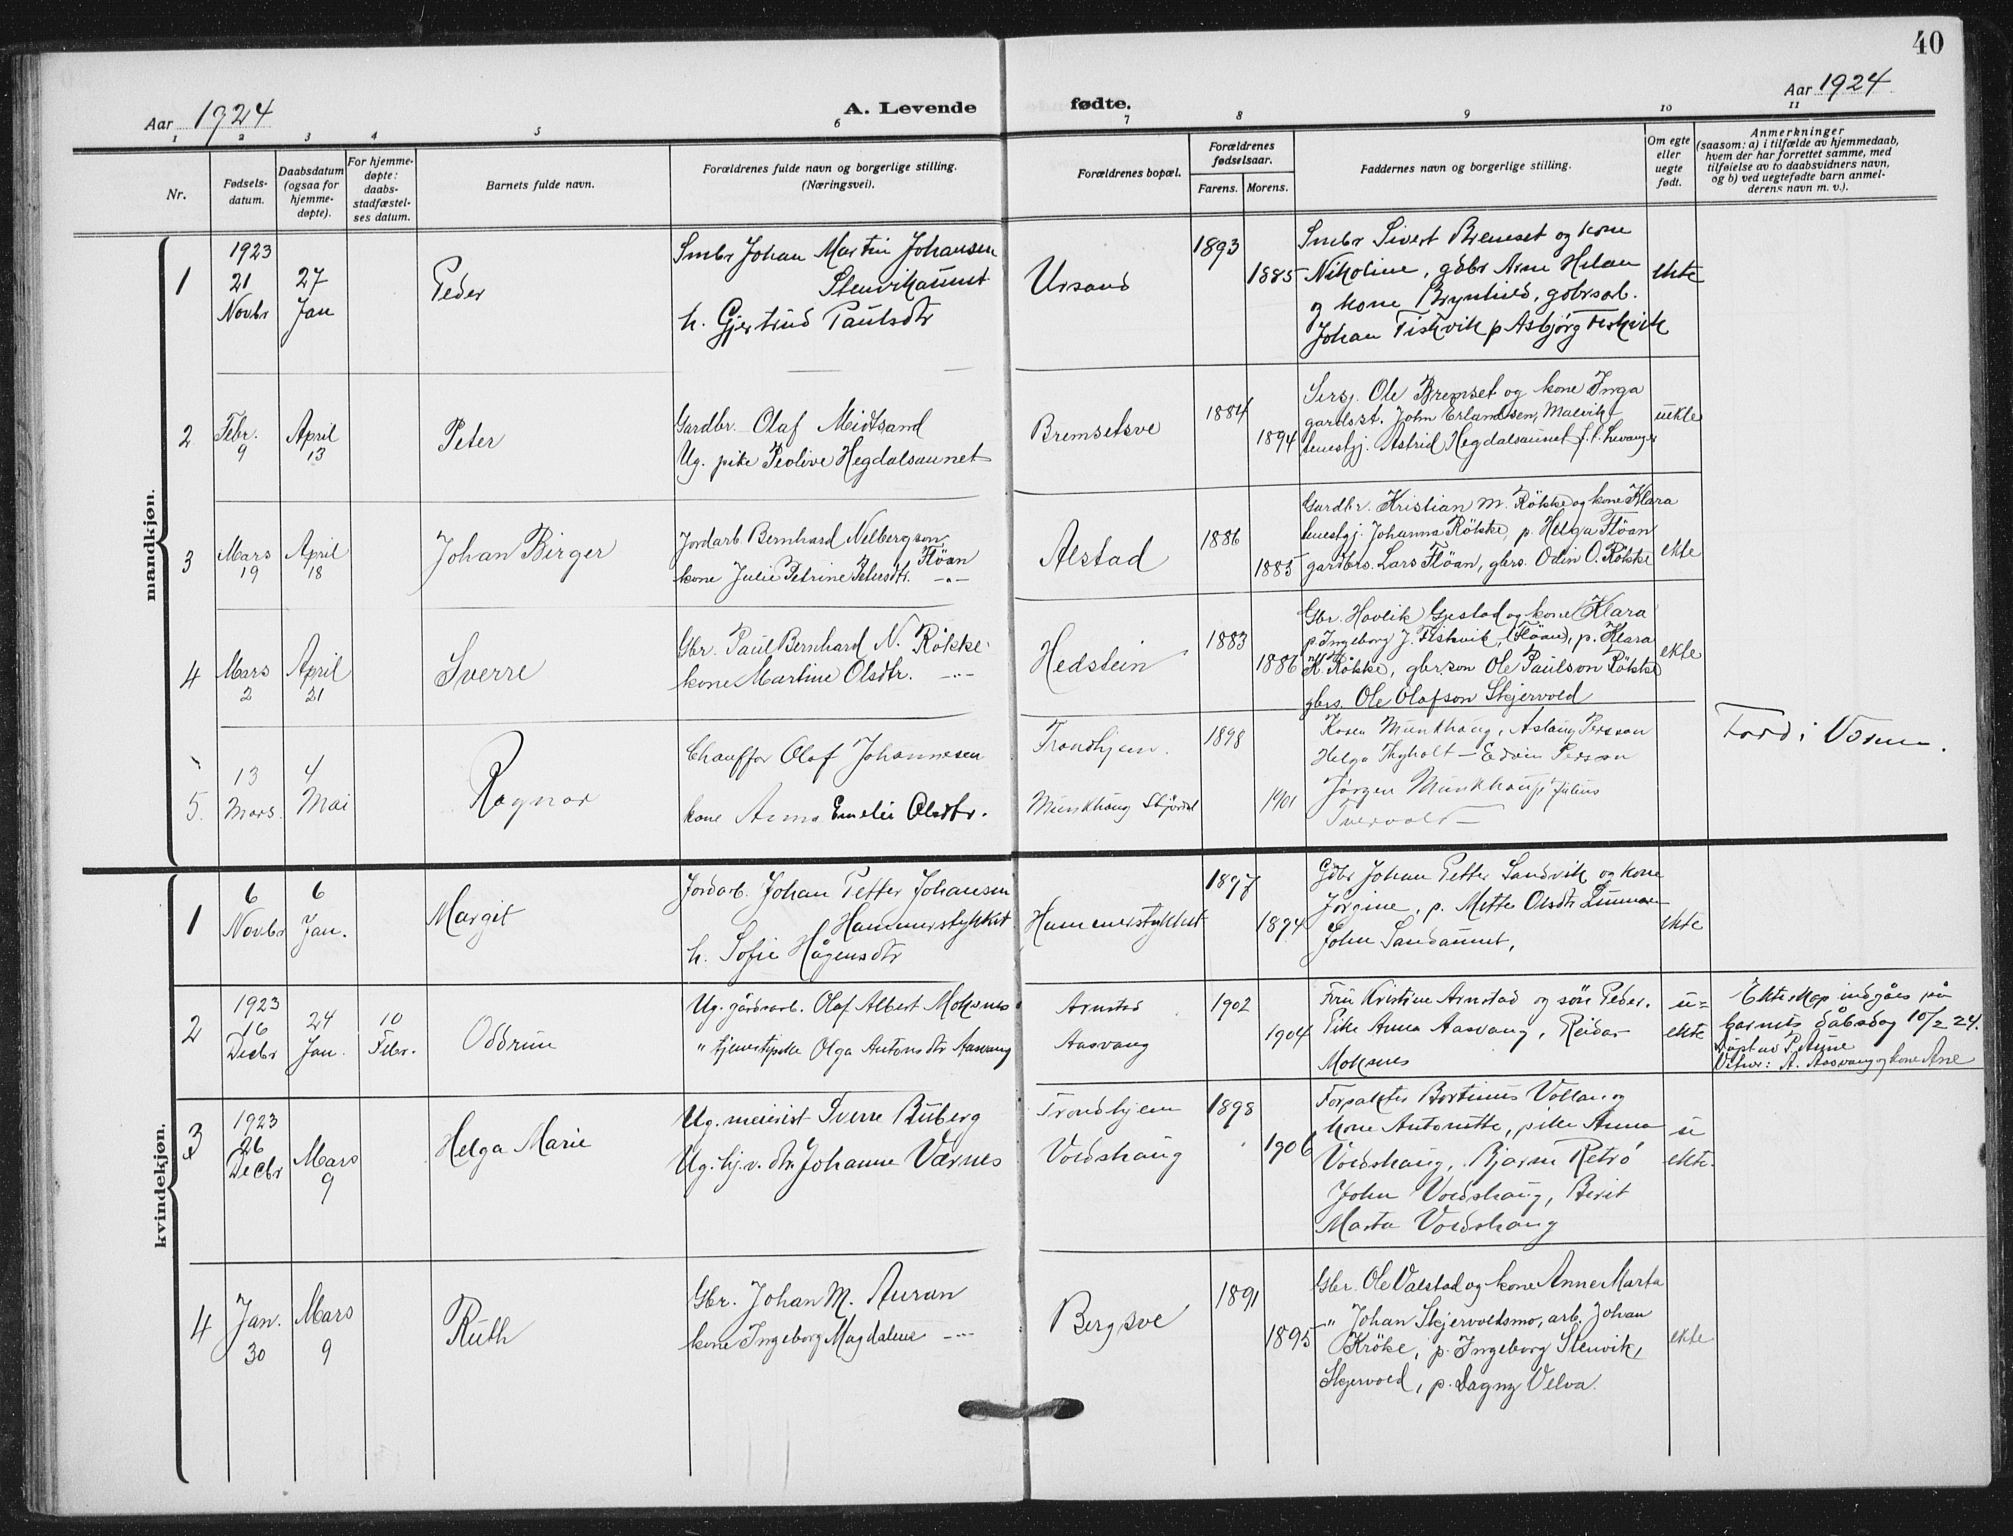 40
Aar 1924 A. Levende fødte. Aar 1924
1 2 3 4 5 6 7 8 9 10 11
Nr.
Fødsels-
datum.
Daabsdatum
(ogsaa for
hjemme-
døpte).
For hjemme-
døpte:
daabs-
stadfæstel-
ses datum.
Barnets fulde navn.
Forældrenes fulde navn og borgerlige stilling.
(Næringsvei).
Forældrenes bopæl.
Forældrenes
fødselsaar.
Farens. Morens.
Faddernes navn og borgerlige stilling.
Om egte
eller
uegte
født.
Anmerkninger
(saasom: a) i tilfælde av hjemmedaab,
hvem der har forrettet samme, med
tilføielse av to daabsvidners navn,
og b) ved uegtefødte barn anmel-
derens navn m. v.).
mandkjøn.
1
1923
21
Novbr
27
Jan
Peder
Smbr Johan Martin Johansen
Stenvikaunet
h. Gjertrud Paulsdtr
Ursand
1893
1885
Smbr Sivert Bremset og kone
Nikoline, gdbr Arne Helan
og kone Brynhild, gdbrsøb.
Johan Fiskvik p Asbjørg Fiskvik
ekte
2
Febr.
9
April
13
Peter
Gardbr. Olaf Meidtsand
Ug. pike Peolive Hegdalsaunet
Bremsetsve
1884
1894
Sersj. Ole Bremset og kone Inga
gardsst. John Erlandsen, Malvik
tenestgj. Astrid Hegdalsaunet f.t. Levanger
uekte
3
Mars
19
April
18
Johan Birger
Jordarb. Bernhard Nelbergson
Fløan
kone Julie Petrine Petersdtr. -"-
Alstad
1886
1885
Gardbr. Kristian M. Røkke og kone Klara
tenestgj. Johanna Røkke, p. Helga Fløan
gardbrs. Lars Fløan, gbrs. Odin O. Røkke
ekte
4
Mars
2
April
21
Sverre
Gbr. Paul Bernhard N. Røkke
kone Martine Olsdtr. -"-
Hedstein
1883
1886
Gbr. Hovlik Gjestad og kone Klara
p. Ingeborg J. Fiskvik, (Fløan), p. Klara
K. Røkke, gbr.son Ole Paulson Røkke
gbrs. Ole Olafson Skjervold
ekte
5.
13
Mars.
4
Mai
Ragnar
Chauffør Olaf Johannesen
kone Anna Emelie Olsdtr.
Trondhjem.
Munkhaug Stjørdal
1898
1901
Karen Munkhaug, Aslaug Persson
Helga Thyholt — Edvin Persson
Jørgen Munkhaug Julius
Tvervold —
Født i Værnes.
kvindekjøn.
1
6
Novbr
6
Jan.
Margit
Jordarb. Johan Petter Johansen
Hammerstykket
h. Sofie Hågensdtr
Hammerstykket
1897
1894
Gdbr Johan Petter Sandvik og kone
Jørgine, p. Mette Olsdtr
John Sandaunet,
ekte
2
1923
16
Decbr
24
Jan.
10
Febr.
Oddrun
Ug. gårdsarb. Olaf Albert Moksnes
" tjenestpike Olga Antonsdtr Aasvang
Arnstad
Aasvang
1902
1904
Fru Kristine Arnstad og søn Peder.
Pike Anna Aasvang, Reidar
Moksnes
u=
ekte
Ekteskap indgåes på
barnets dåbsdag 10/2 24.
Døpt av P. Aune
Vitner: A. Aasvang og kone Ane
3
1923
26
Decbr
Mars
9
Helga Marie
Ug. meierist Sverre Buberg
Ug. hj.v. dtr. Johanne Værnes
Trondhjem
Voldshaug
1898
1906
Forpakter Bortinus Vollan og
kone Antonette, pike Anna
Voldshaug, Bjarne Retrø
John Voldshaug, Berit
Marta Voldshaug
u
ekte.
4
Jan.
30
Mars
9
Ruth
Gbr. Johan M. Auran
kone Ingeborg Magdalene -"-
Bergsve
1891
1895
Gbr. Ole Valstad og kone Anne Marta
" Johan Skjervoldsmo, arb. Johan
Krøke, p. Ingeborg Stenvik,
Skjervold, p. Dagny Velva.
ekte